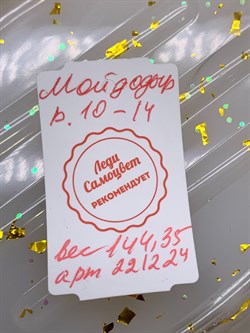 Мойдодыр
р. 10-14
Леди
Самоцвет
РЕКОМЕНДУЕТ
вес 144,35
арт 221224